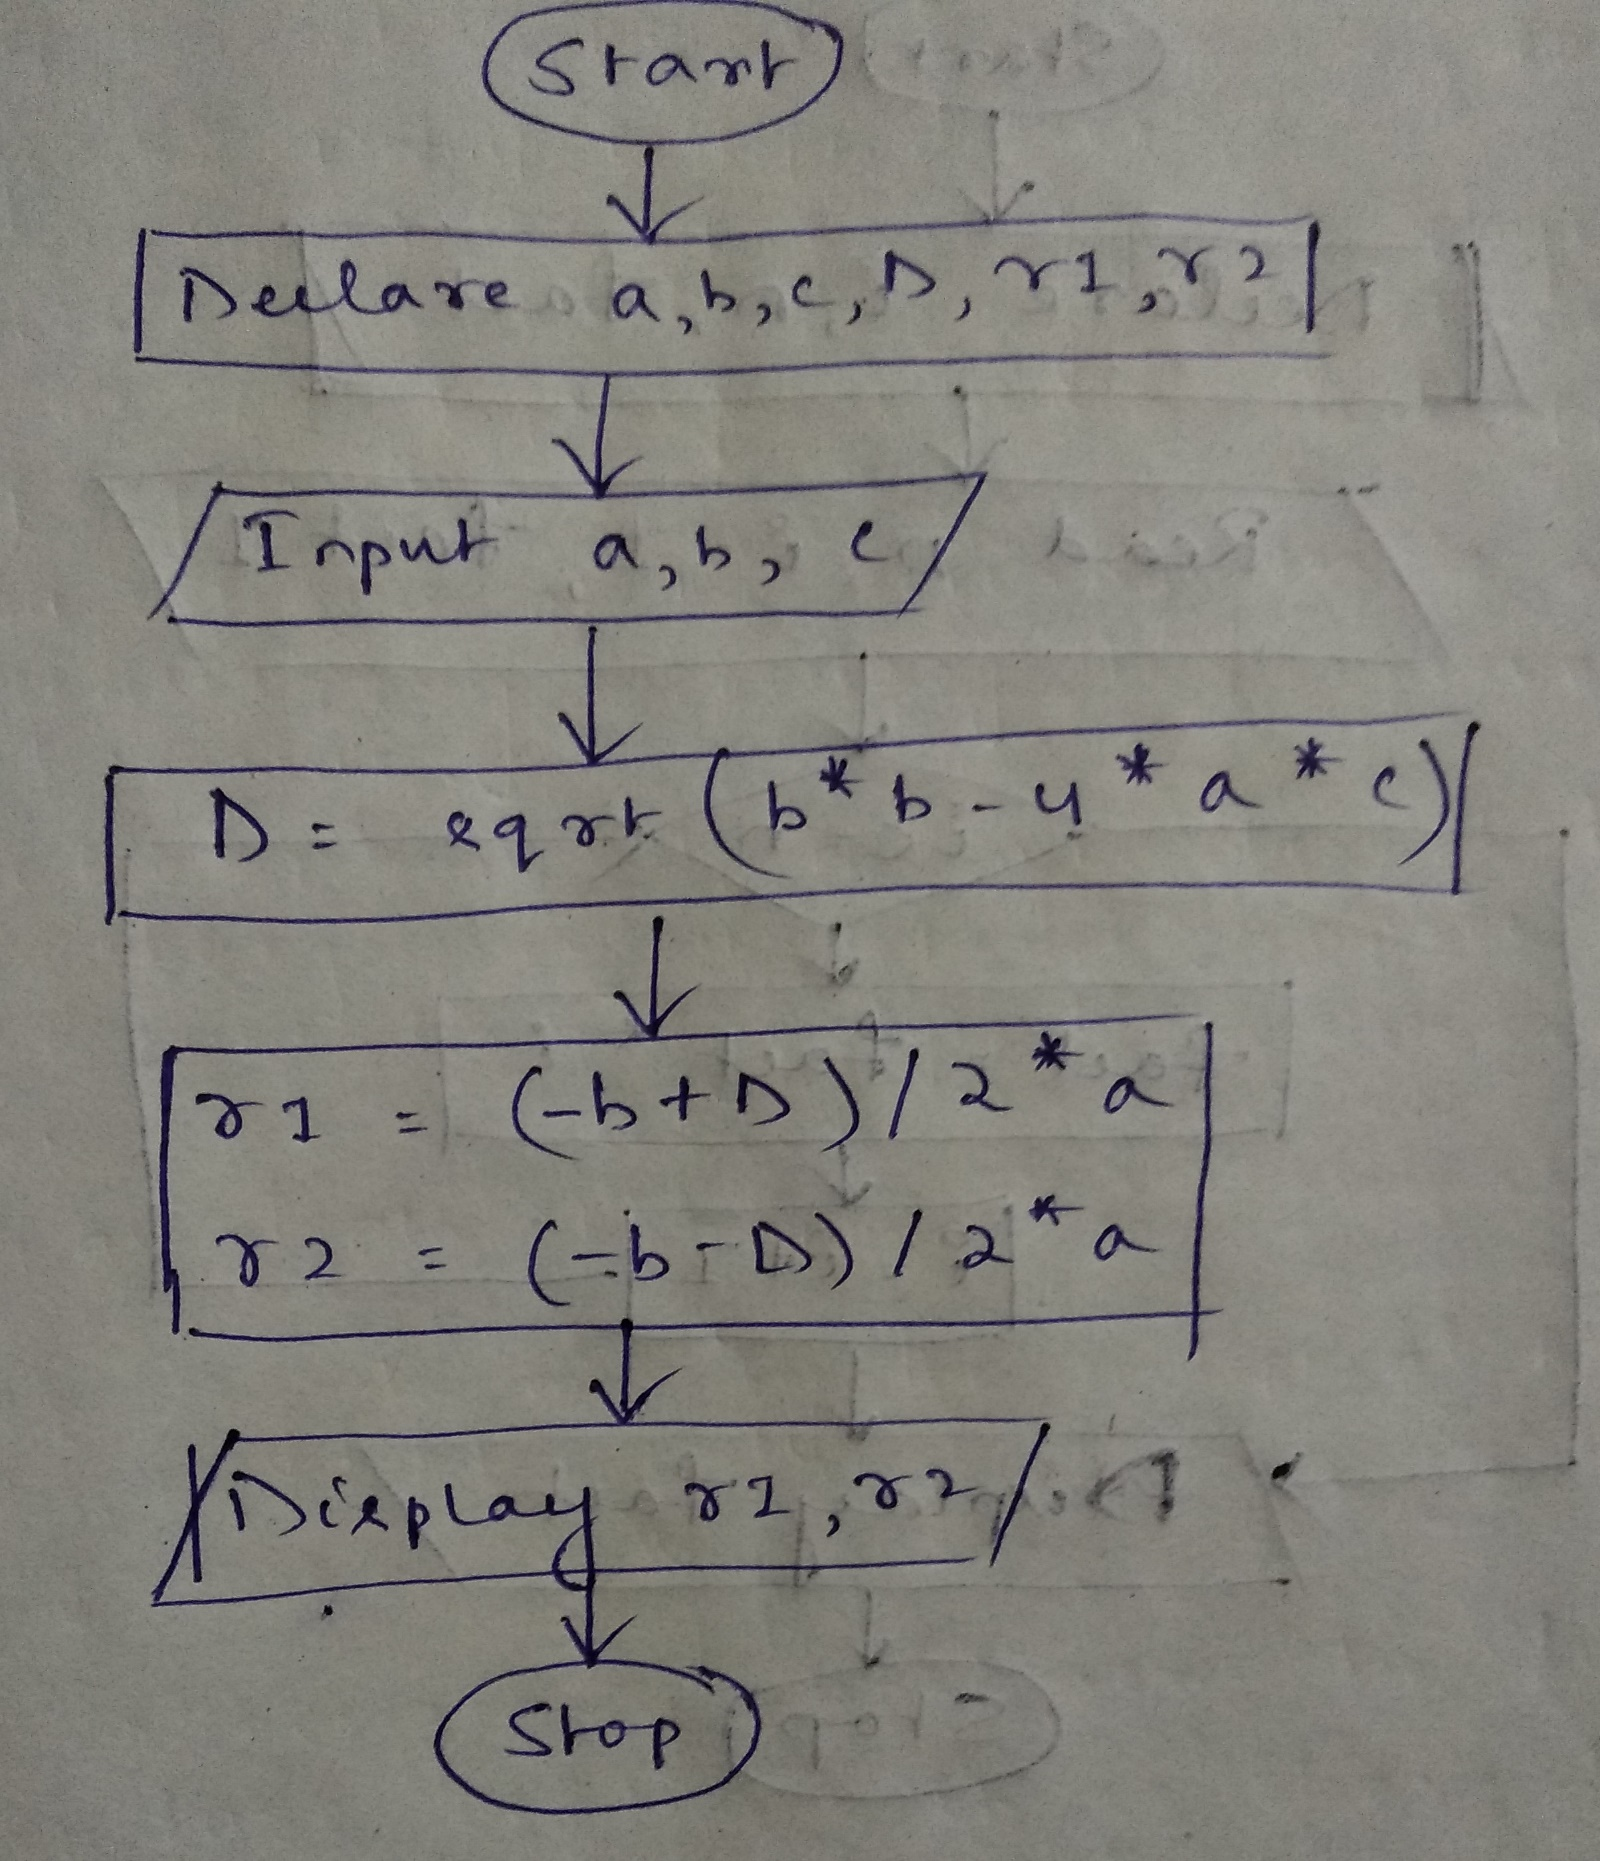 Start
Declare a, b, c, D, r1, r2
Input a, b, c
D = sqrt (b * b - 4 * a * c)
r1 = (-b + D) / 2 * a
r2 = (-b - D) / 2 * a
Display r1, r2
Stop